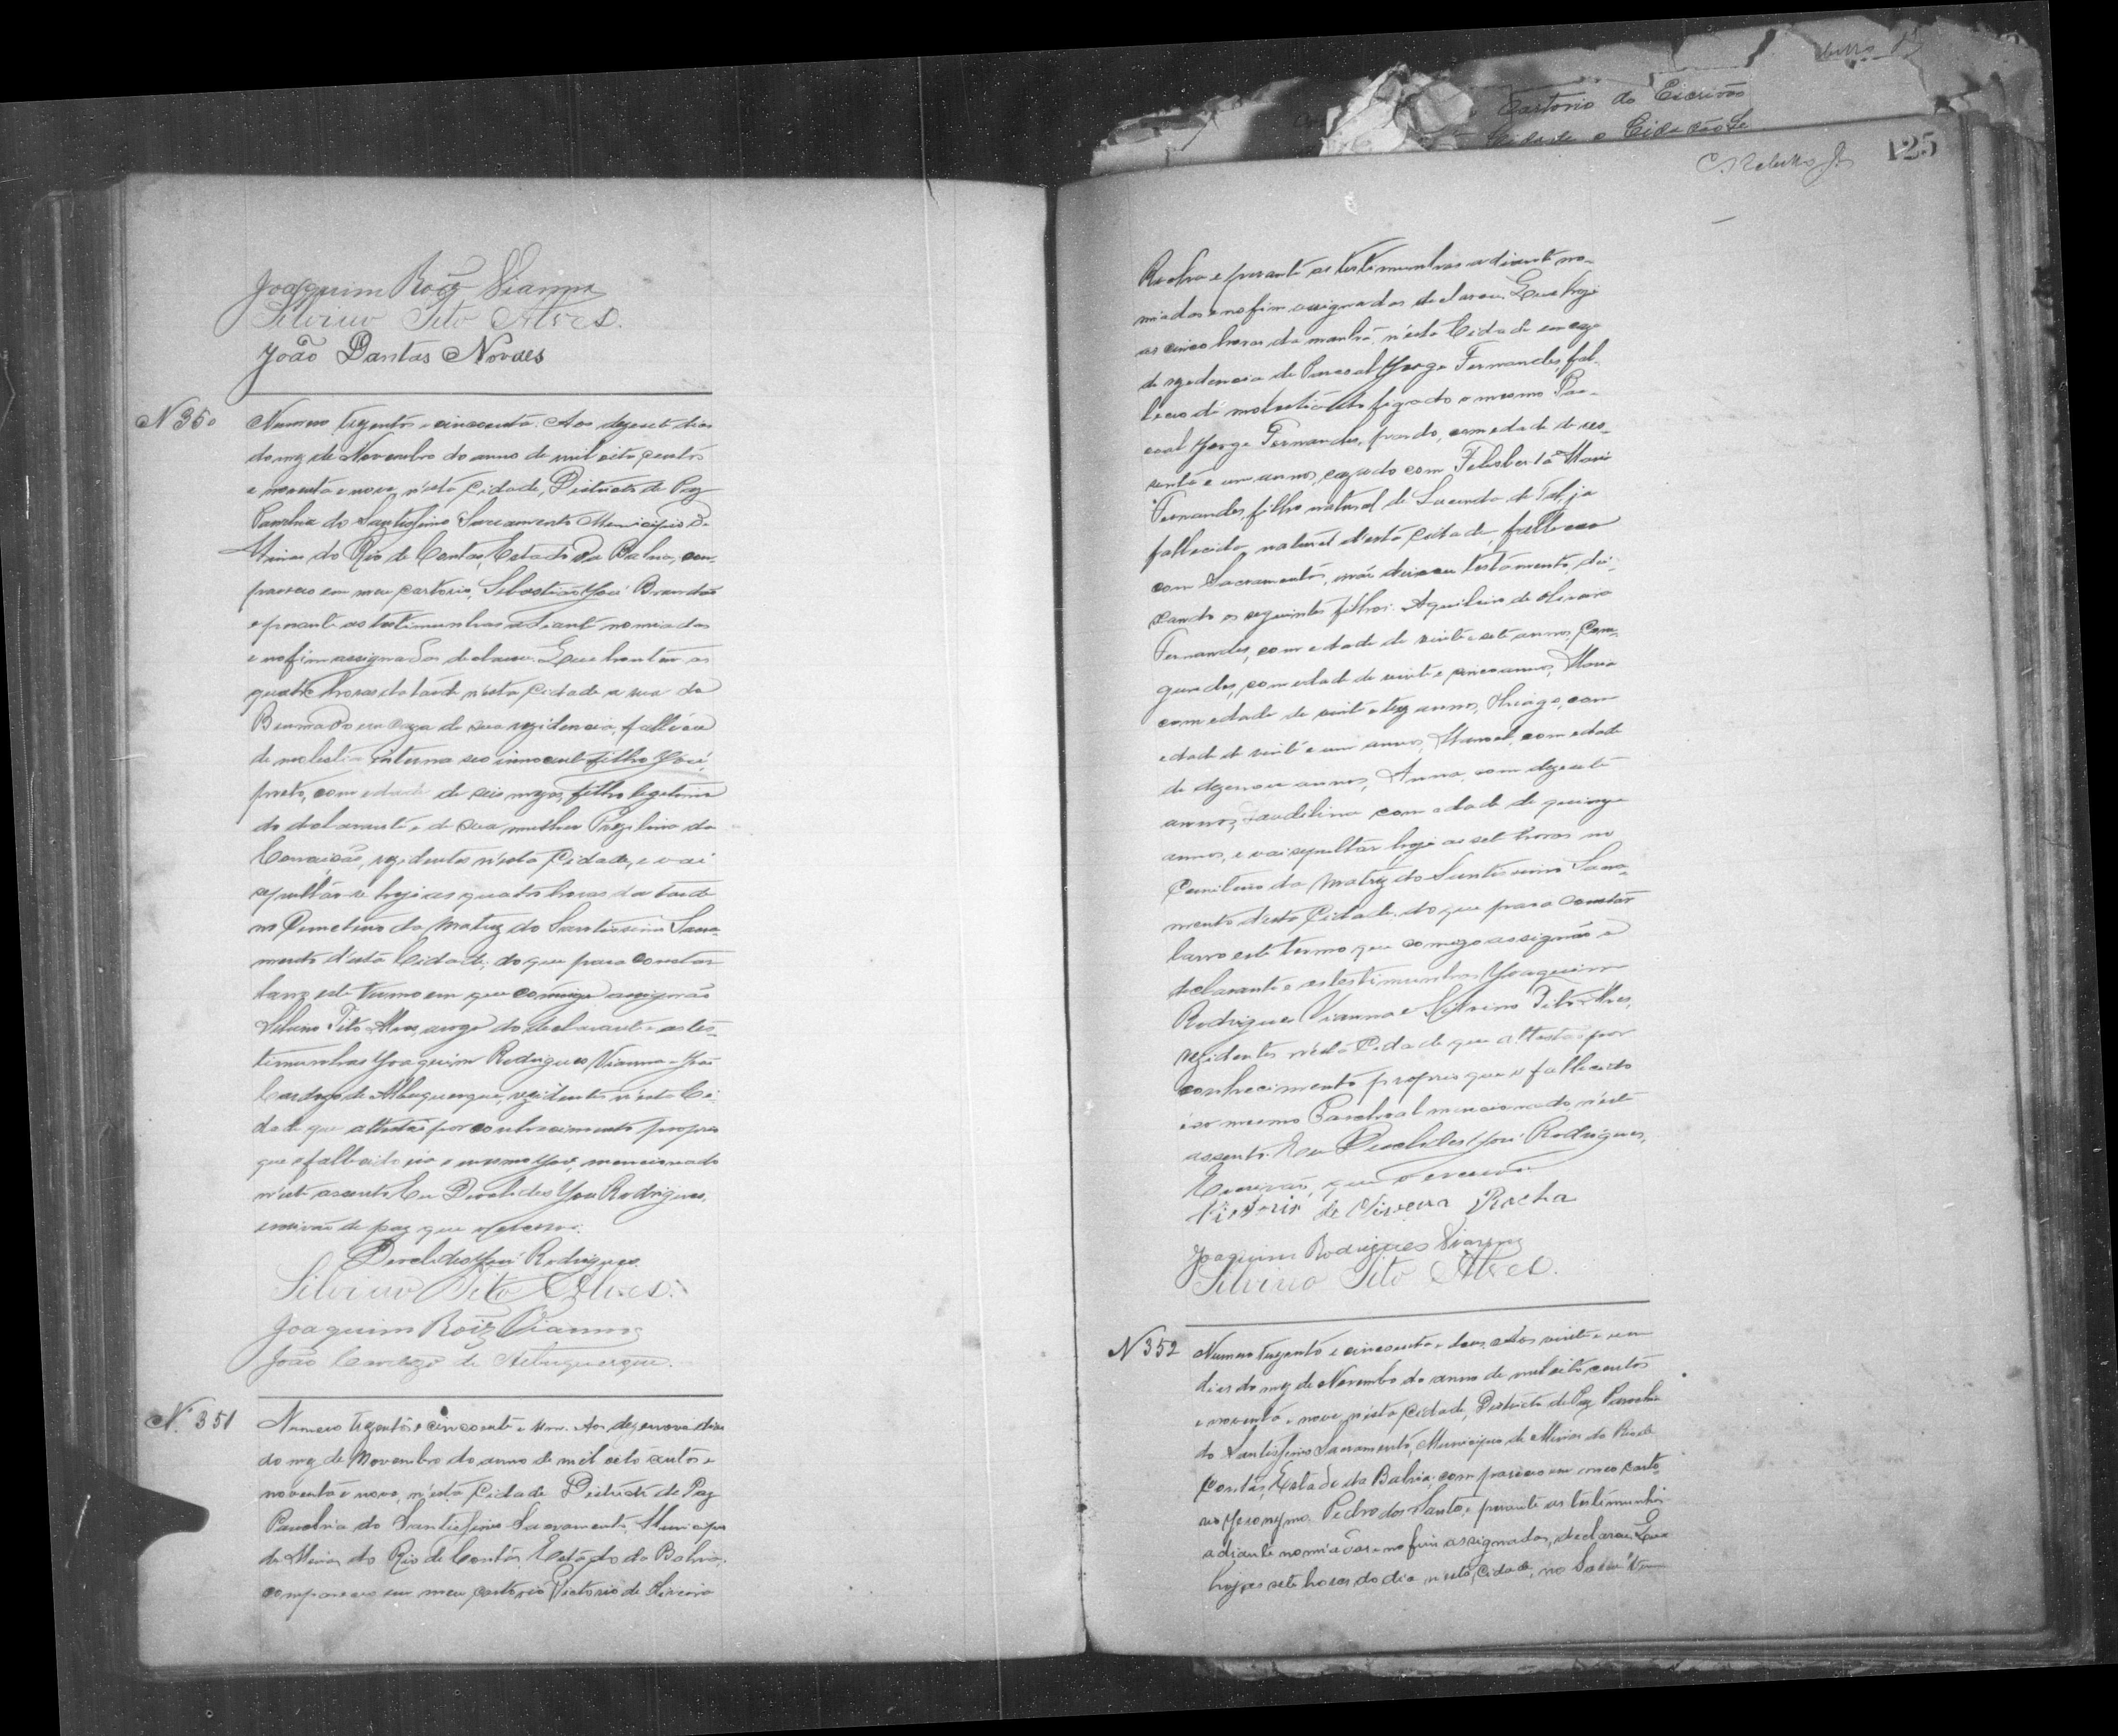 Joaquim Roiz Vianna
Silvino Tito Alves.
João Dantas Novaes
N 350
Numero trezentos e cincoenta. Aos dezesete dias
do mez de Novembro do anno de mil oito centos
e noventa e nove, n'esta Cidade, Districto de Paz
Parochia do Santissimo Sacramento Municipio de
Minas do Rio de Contas, Estado da Bahia, com-
pareceu em meu cartorio, Sebastião José Brandão
e perante as testimunhas adiante nomiadas
e no fim assignadas declarou. Que hontem as
quatro horas da tarde n'esta Cidade a rua do
Brumado em caza de sua rezidencia, falleceu
de molestia interna seo innocente filho José,
preto, com edade de seis mezes, filho legitimo
do declarante e de sua mulher Prezelina da
Conceição, rezidentes n'esta Cidade, e vai
sepultar-se hoje as quatro horas da tarde
no Cemeterio da Matriz do Santissimo Sacra-
mento d'esta Cidade; do que para constar
lavro este termo em que comigo assignão
Silvino Tito Alves, arogo do declarante e as tes-
timunhas Joaquim Rodrigues Vianna e João
Cardozo de Albuquerque, rezidentes n'esta Ci-
dade que attestão por conhecimento proprio
que o fallecido era o mesmo José, mencionado
n'este assento. Eu Deoclides José Rodrigues,
escrivão de paz que o escrevi.
Deoclides José Rodrigues
Silvino Tito Alves.
Joaquim Roiz Vianna
João Cardozo de Albuquerque.
N. 351
Numero trezentos e cincoenta e um. Aos dezenove dias
do mez de Novembro do anno de mil oito centos e
noventa e nove, n'esta Cidade Districto de Paz
Parochia do Santissimo Sacramento, Municipio
de Minas do Rio de Contas Estado da Bahia,
compareceu em meu cartorio Victorio de Oliveira
125
Cartorio do Escrivão
Rocha e perante as testimunhas adiante no-
miadas e no fim assignadas declarou. Que hoje
as cinco horas da manhã, n'esta Cidade em caza
de rezidencia de Pascoal Jorge Fernandes, fal-
leceu de molestia do figado o mesmo Pas-
coal Jorge Fernandes, pardo, com edade de ses-
senta e um annos, cazado com Felisberta Maria
Fernandes, filho natural de de Tal, ja
fallecida, natural d'esta Cidade, falleceu
com Sacramentos, não deixou testamento, dei-
xando os seguintes filhos: de Oliveira
Fernandes, com edade de vinte e sete annos,
com edade de vinte e cinco annos, Maria
com edade de vinte e trez annos, Thiago, com
edade de vinte e um annos, Manoel, com edade
de dezenove annos, Anna, com dezesete
annos, com edade de quinze
annos, e vai sepultar hoje as sete horas no
Cemiterio da Matriz do Santissimo Sacra-
mento d'esta Cidade. do que para constar
lavro este termo que comigo assignão o
declarante e as testimunhas Joaquim
Rodrigues Vianna e Silvino Tito Alves,
rezidentes n'esta Cidade que attestão por
conhecimento proprio que o fallecido
é o mesmo Paschoal mencionado n'este
assento. Eu Deoclides José Rodrigues,
Escrivão, que o escrevi.
Victorio de Oliveira Rocha
Joaquim Rodrigues Vianna
Silvino Tito Alves.
N 352
Numero trezentos e cincoenta e dous. Aos vinte e um
dias do mez de Novembro do anno de mil oito centos
e noventa e nove, n'esta Cidade, Districto de Paz Parochia
do Santissimo Sacramento, Municipio de Minas do Rio de
Contas, Estado da Bahia, compareceu em meo carto-
rio Jeronymo Pedro dos Santos, perante as testimunhas
adiante nomiadas e no fim assignadas, declarou. Que
hoje as sete horas do dia n'esta Cidade, no